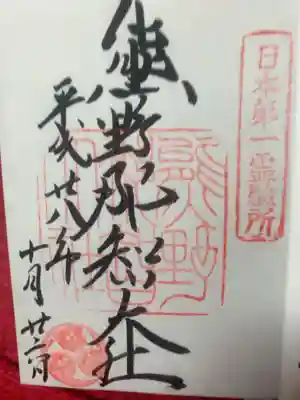 日本第一霊験所
熊野那智大社
平成廿八年
十月廿二日